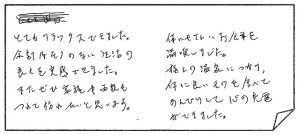 とてもリラックスできました。
余計なものの無い生活の
良さを実感できました。
またぜひ家族や両親も
つれて訪れたいと思います。
体にやさしいお食事を
満喫しました。
極上の温泉につかり、
体に良いものを食べて
のんびりして心の充電
ができました。